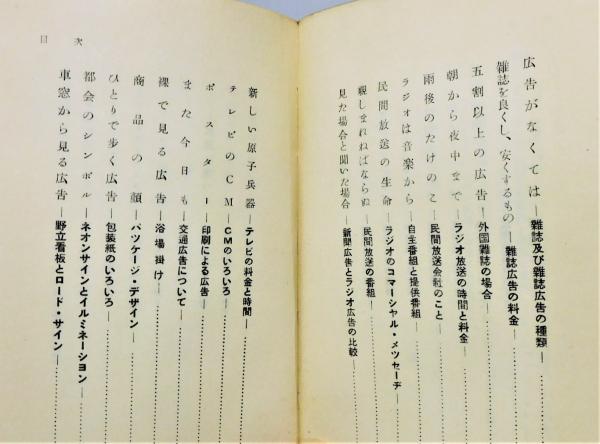 広告がなくては―雑誌及び雑誌広告の種類―
雑誌を良くし、安くするもの―雑誌広告の料金―
五割以上の広告―外国雑誌の場合―
朝から夜中まで―ラジオ放送の時間と料金―
雨後のたけのこ―民間放送会社のこと―
ラジオは音楽から―自主番組と提供番組―
民間放送の生命―ラジオのコマーシャル・メッセーヂ―
親しまれねばならぬ―民間放送の番組―
見た場合と聞いた場合―新聞広告とラジオ広告の比較―
新しい原子兵器―テレビの料金と時間―
テレビのCM―CMのいろいろ―
ポスター―印刷による広告―
また今日も―交通広告について―
裸で見る広告―浴場掛け―
商品の顔―パッケージ・デザイン―
ひとりで歩く広告―包装紙のいろいろ―
都会のシンボル―ネオンサインとイルミネーション―
車窓から見る広告―野立看板とロード・サイン―
目次